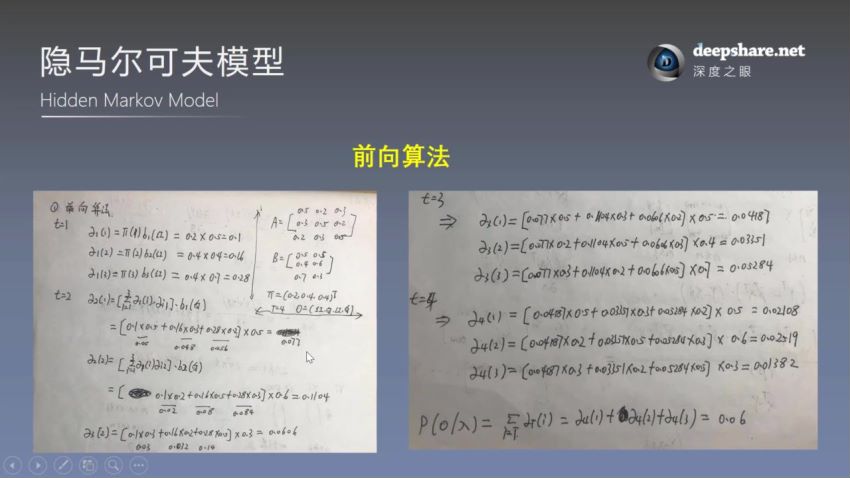 隐马尔可夫模型
Hidden Markov Model
deepshare.net
深度之眼
前向算法
① 前向算法
t=1
α₁(1) = π(1) b₁(红) = 0.2 × 0.5 = 0.1
α₁(2) = π(2) b₂(红) = 0.4 × 0.4 = 0.16
= π(3) b₃(红) = 0.4 × 0.7 = 0.28
A = [0.5 0.2 0.3
0.3 0.5 0.2
0.2 0.3 0.5]
B = [0.5 0.5
0.4 0.6
0.7 0.3]
π = (0.2, 0.4, 0.4)ᵀ
T=4 O=(红,白,红,白)
t=2
= [0.1×0.5 + 0.16×0.3 + 0.28×0.2] × 0.5 =
0.05 0.048 0.056
0.077
= [ 0.1×0.2 + 0.16×0.5 + 0.28×0.3] × 0.6 = 0.1104
0.02 0.08 0.084
= [0.1×0.3 + 0.16×0.2 + 0.28×0.5] × 0.3 = 0.0606
0.03 0.032 0.14
t=3
⇒ α₃(1) = [0.077×0.5 + 0.1104×0.3 + 0.0606×0.2] × 0.5 = 0.04187
α₃(2) = [0.077×0.2 + 0.1104×0.5 + 0.0606×0.3] × 0.4 = 0.03551
α₃(3) = [0.077×0.3 + 0.1104×0.2 + 0.0606×0.5] × 0.7 = 0.05284
t=4
⇒ α₄(1) = [0.04187×0.5 + 0.03551×0.3 + 0.05284×0.2] × 0.5 = 0.02108
α₄(2) = [0.04187×0.2 + 0.03551×0.5 + 0.05284×0.3] × 0.6 = 0.02519
α₄(3) = [0.04187×0.3 + 0.03551×0.2 + 0.05284×0.5] × 0.3 = 0.01382
P(O|λ) = Σ αT(i) = α₄(1) + α₄(2) + α₄(3) = 0.06